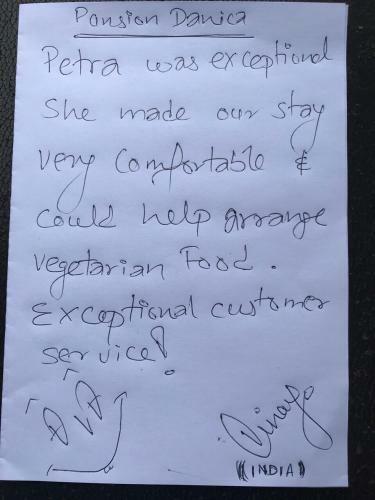 Pansion Danica
Petra was exceptional
She made our stay
very comfortable &
could help arrange
vegetarian Food.
Exceptional customer
service!
Vinay
(INDIA)